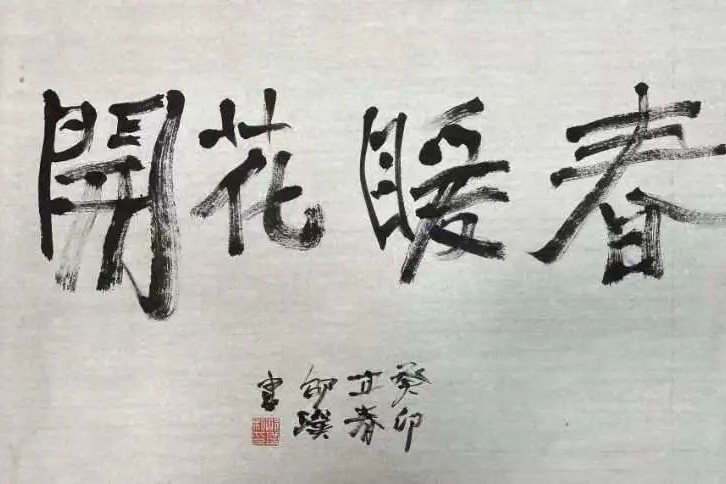 春暖花開
癸卯
立春
書